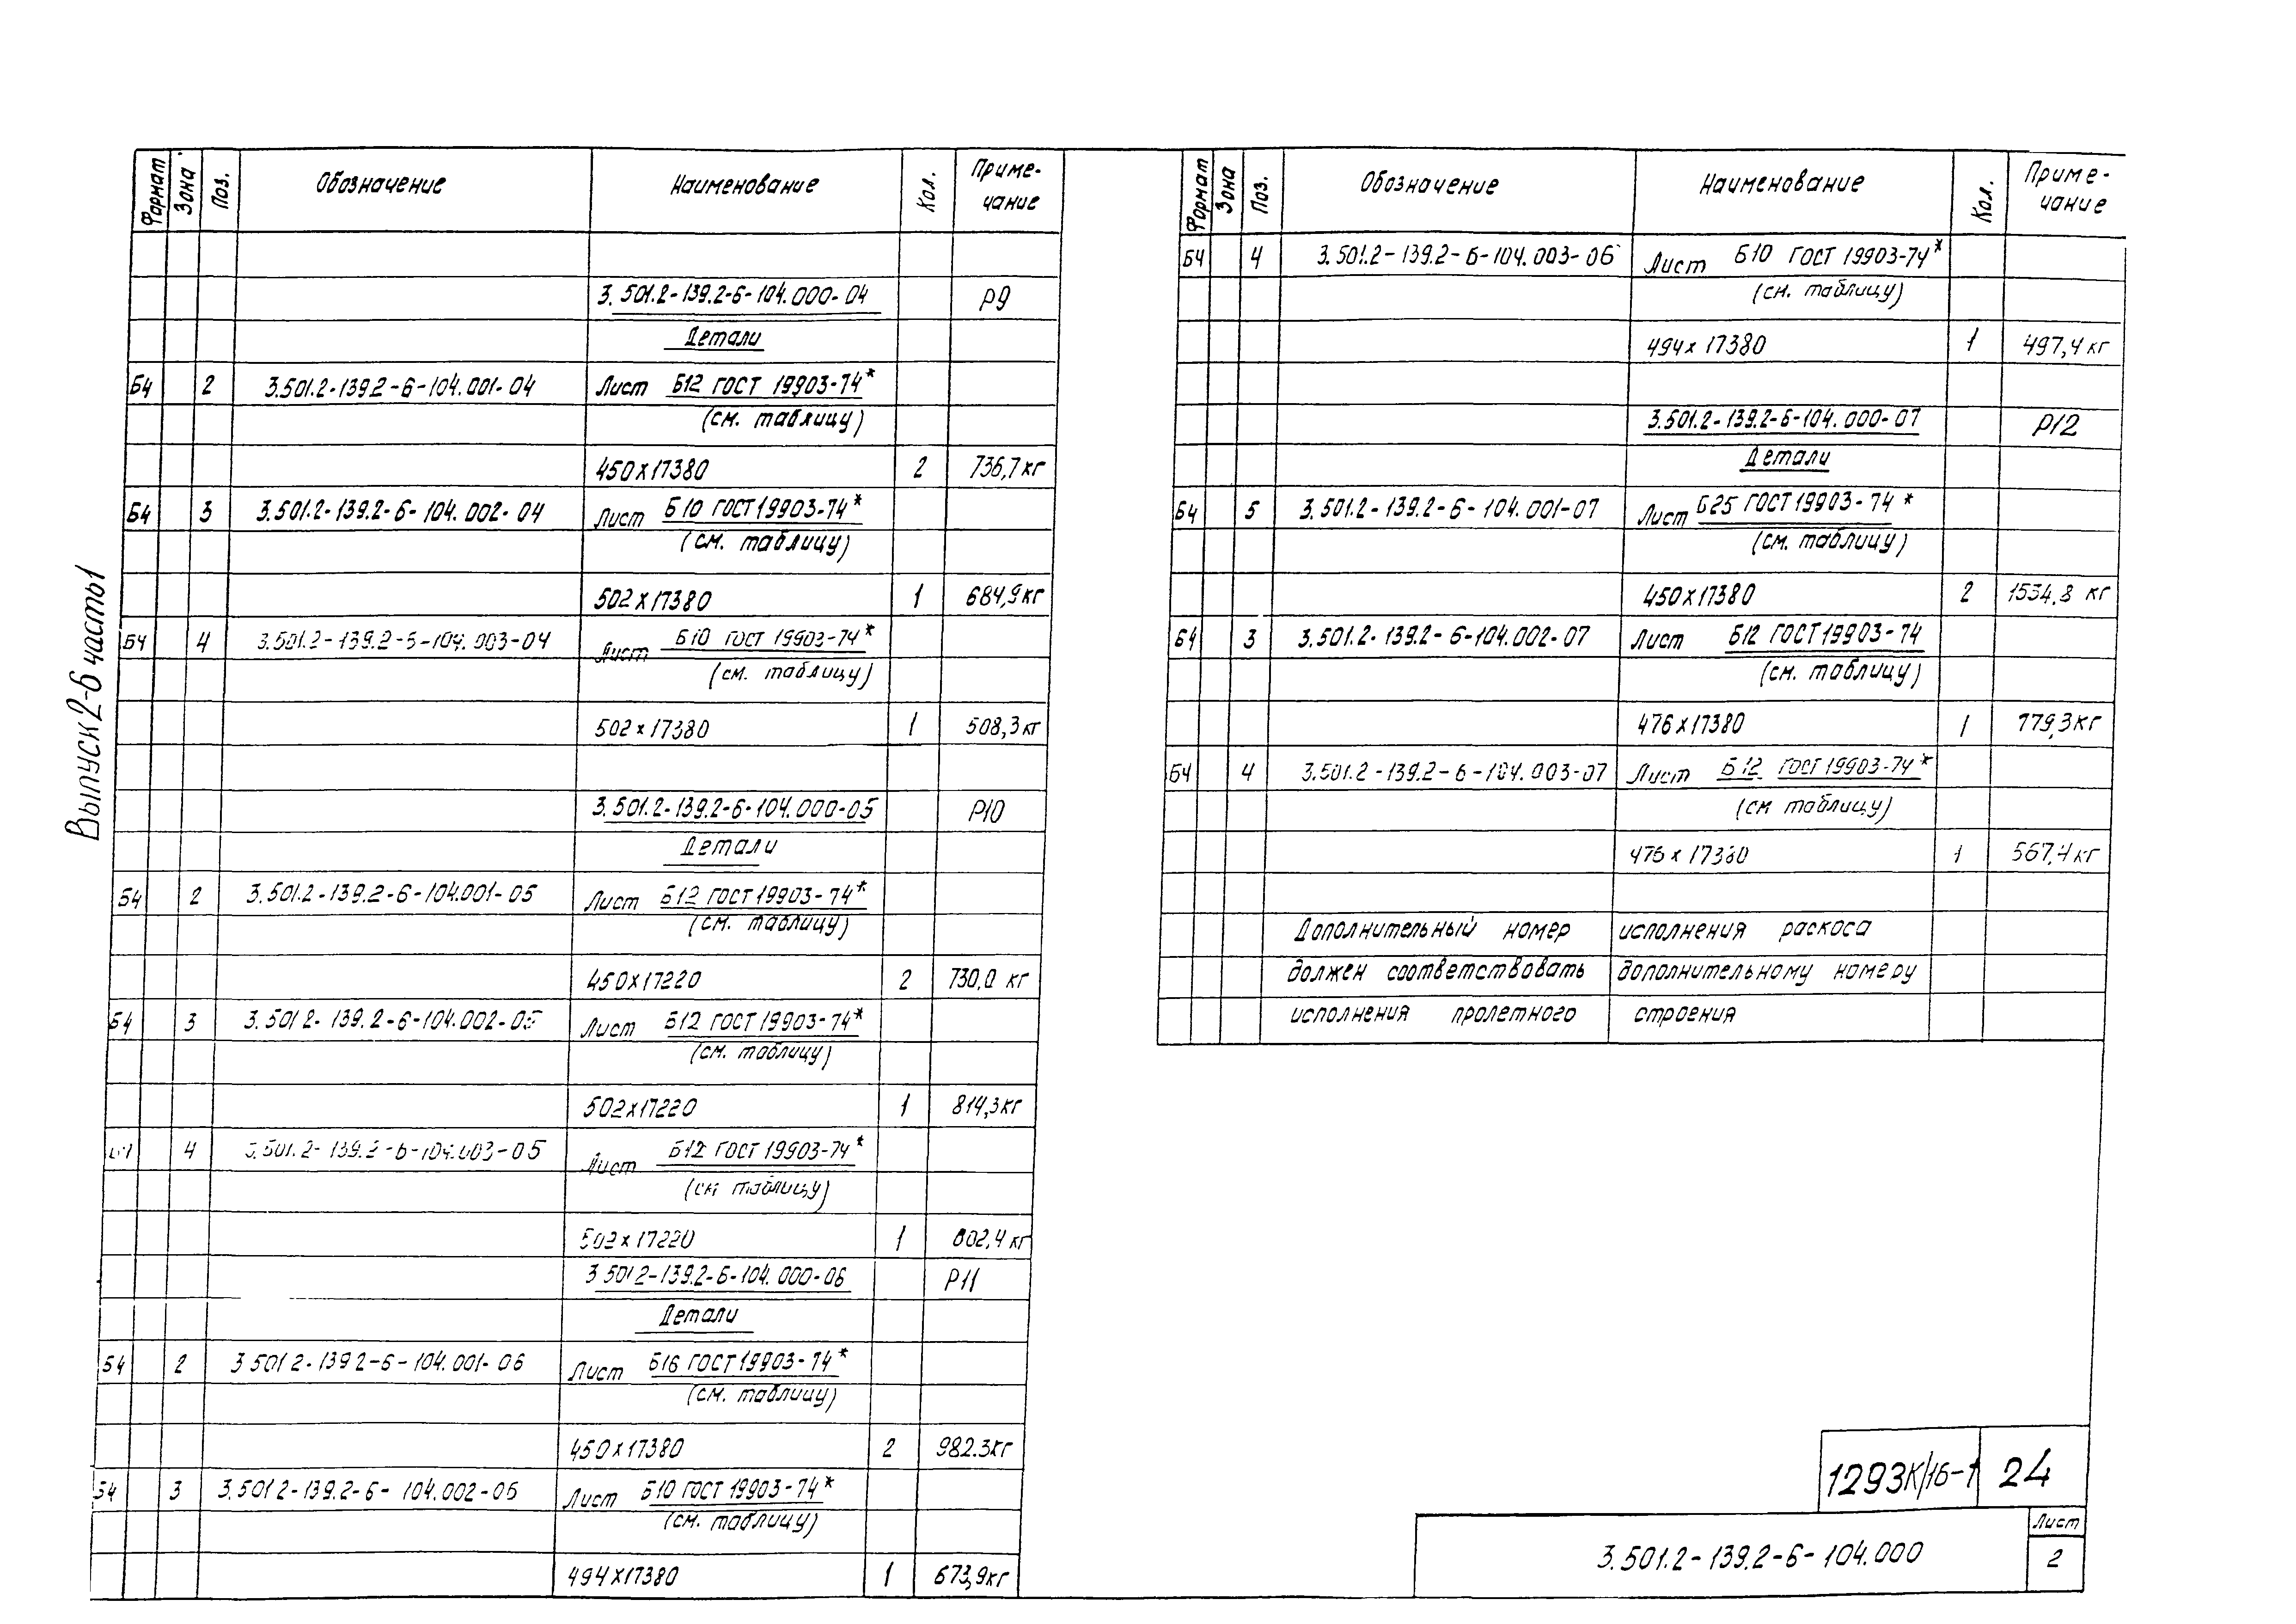 Выпуск 2-6 часть 1
Формат Зона Поз. Обозначение Наименование Кол. Приме-
чание
3.501.2-139.2-6-104.000-04 Р9
Детали
Б4 2 3.501.2-139.2-6-104.001-04 Лист Б12 ГОСТ 19903-74*
(см. таблицу)
450х17380 2 736,7кг
Б4 3 3.501.2-139.2-6-104.002-04 Лист Б10 ГОСТ 19903-74*
(см. таблицу)
502х17380 1 684,9кг
Б4 4 3.501.2-139.2-6-104.003-04 Лист Б10 ГОСТ 19903-74*
(см. таблицу)
502х17380 1 508,3кг
3.501.2-139.2-6-104.000-05 Р10
Детали
Б4 2 3.501.2-139.2-6-104.001-05 Лист Б12 ГОСТ 19903-74*
(см. таблицу)
450х17220 2 730,0 кг
Б4 3 3.501 2-139.2-6-104.002-05 Лист Б12 ГОСТ 19903-74*
(см. таблицу)
502х17220 1 814,3кг
4 3.501.2-139.2-6-104.003-05 Лист Б12 ГОСТ 19903-74*
(см таблицу)
502х17220 1 602,4кг
3 501 2-139.2-6-104.000-06 Р11
Детали
Б4 2 3 501 2-139 2-6-104.001-06 Лист Б16 ГОСТ 19903-74*
(см. таблицу)
450х17380 2 982.3кг
Б4 3 3.501 2-139.2-6-104.002-06 Лист Б10 ГОСТ 19903-74*
(см. таблицу)
494х17380 1 673,9кг
Формат Зона Поз. Обозначение Наименование Кол. Приме-
чание
Б4 4 3.501.2-139.2-6-104.003-06 Лист Б10 ГОСТ 19903-74*
(см. таблицу)
494х17380 1 497,4кг
3.501.2-139.2-6-104.000-07 Р12
Детали
Б4 5 3.501.2-139.2-6-104.001-07 Лист Б25 ГОСТ 19903-74*
(см. таблицу)
450х17380 2 1534,8 кг
Б4 3 3.501.2-139.2-6-104.002-07 Лист Б12 ГОСТ 19903-74
(см. таблицу)
476х17380 1 779,3кг
Б4 4 3.501.2-139.2-6-104.003-07 Лист Б12 ГОСТ 19903-74*
(см таблицу)
476х17380 1 567,4кг
Дополнительный номер исполнения раскоса
должен соответствовать дополнительному номеру
исполнения пролетного строения
1293К/16-1 24
3.501.2-139.2-6-104.000 Лист
2